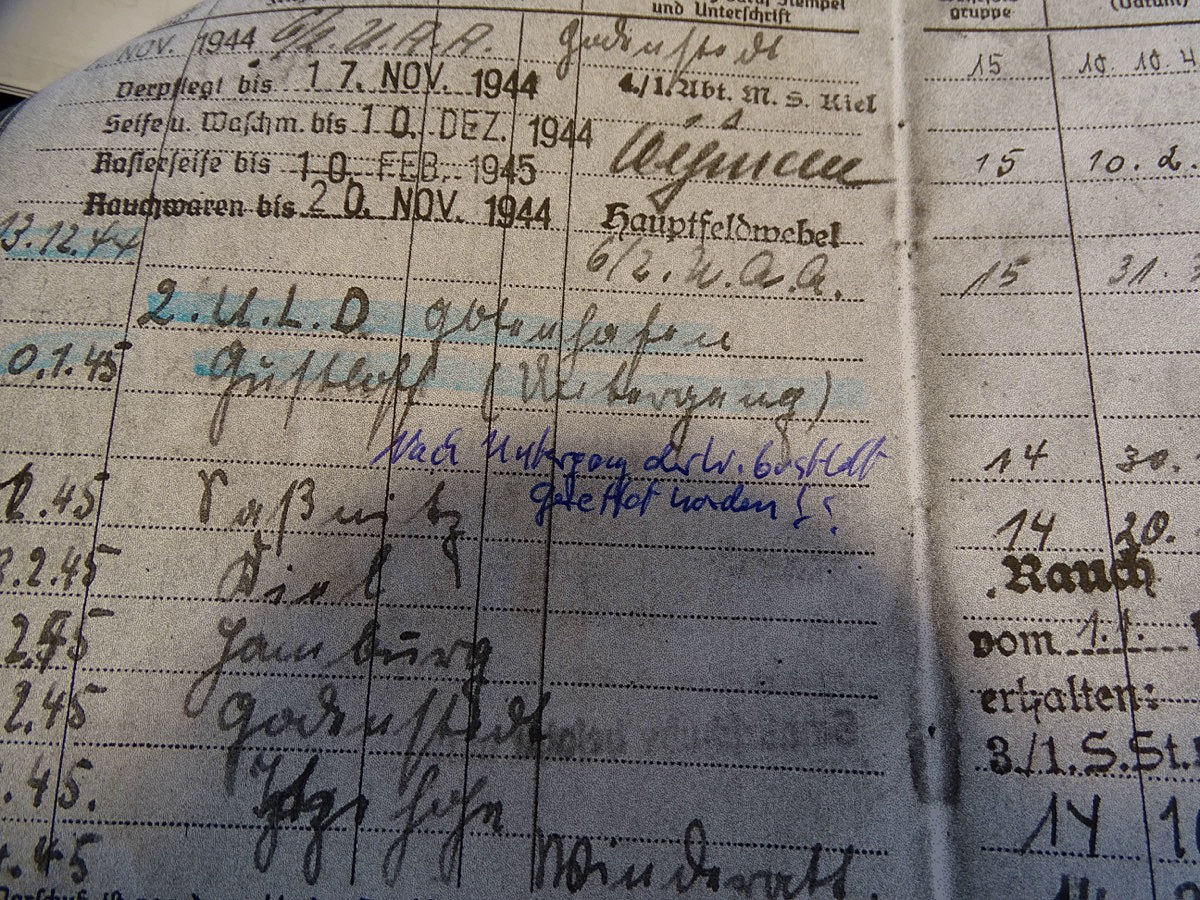 und Unterschrift
gruppe
(Datum)
NOV. 1944 6/2. U. A. A. Godenstedt 15 10. 10. 4
Verpflegt bis 17. NOV. 1944 4./1. Abt. M. S. Kiel
Seife u. Waschm. bis 10. DEZ. 1944
Rasierseife bis 10. FEB. 1945 15 10. 2.
Rauchwaren bis 20. NOV. 1944 Hauptfeldwebel
13.12.44 6/2. U. A. A. 15 31.
2. U. L. D. Gotenhafen
0.1.45 Gustloff (Untergang)
Nach Untergang der W. Gustloff 14 30.
gerettet worden!
2.45 Saßnitz 14 20.
.2.45 Kiel Rauch
2.45 Hamburg vom 1.1.
2.45 Godenstedt erhalten:
3./1. S. St.
.45. Itzehohe 14 1
.45 Winderatt.